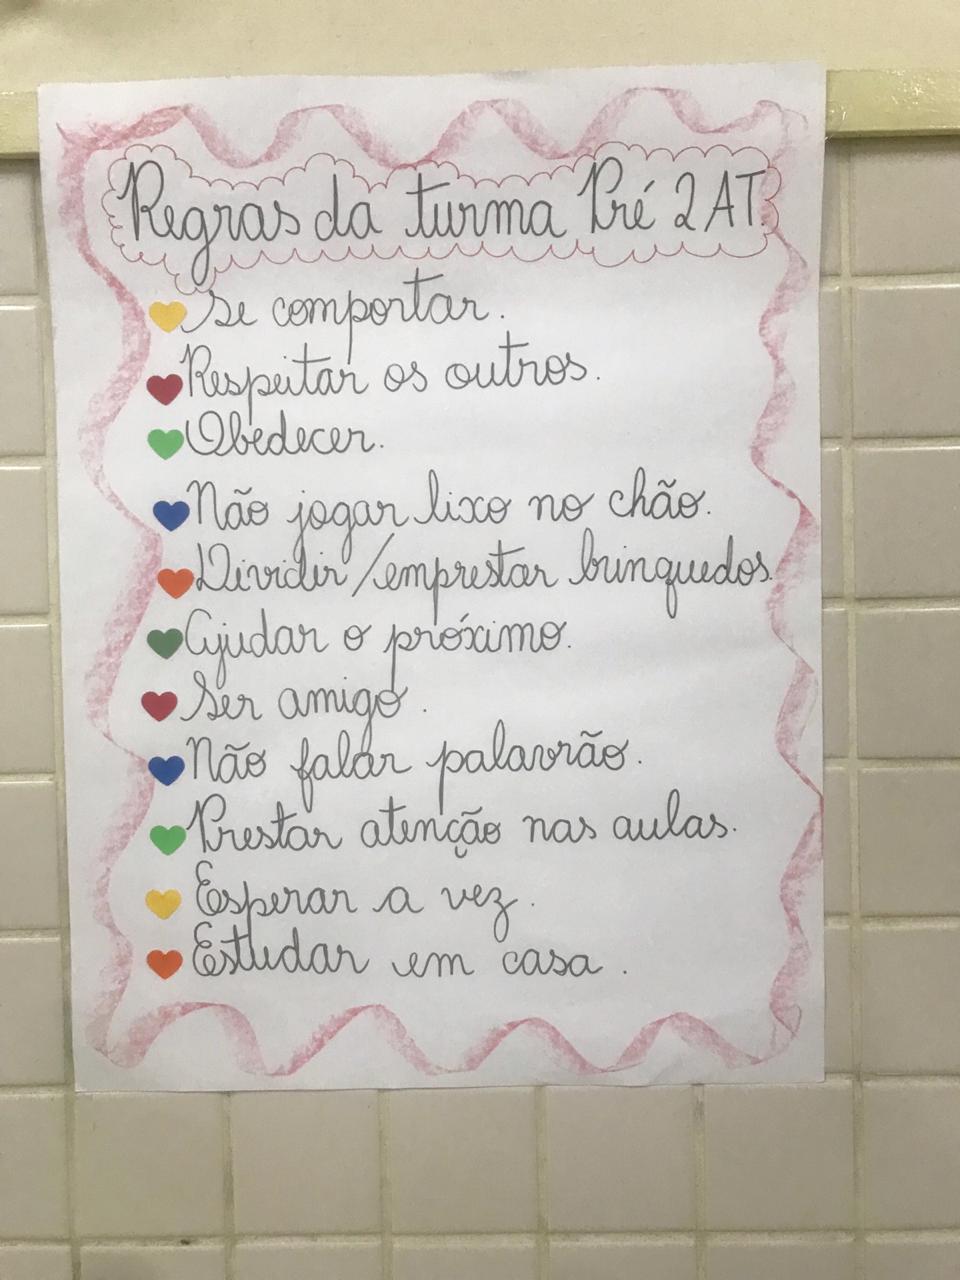 Regras da turma Pré 2 AT.
Se comportar.
Respeitar os outros.
Obedecer.
Não jogar lixo no chão.
Dividir/emprestar brinquedos.
Ajudar o próximo.
Ser amigo.
Não falar palavrão.
Prestar atenção nas aulas.
Esperar a vez.
Estudar em casa.